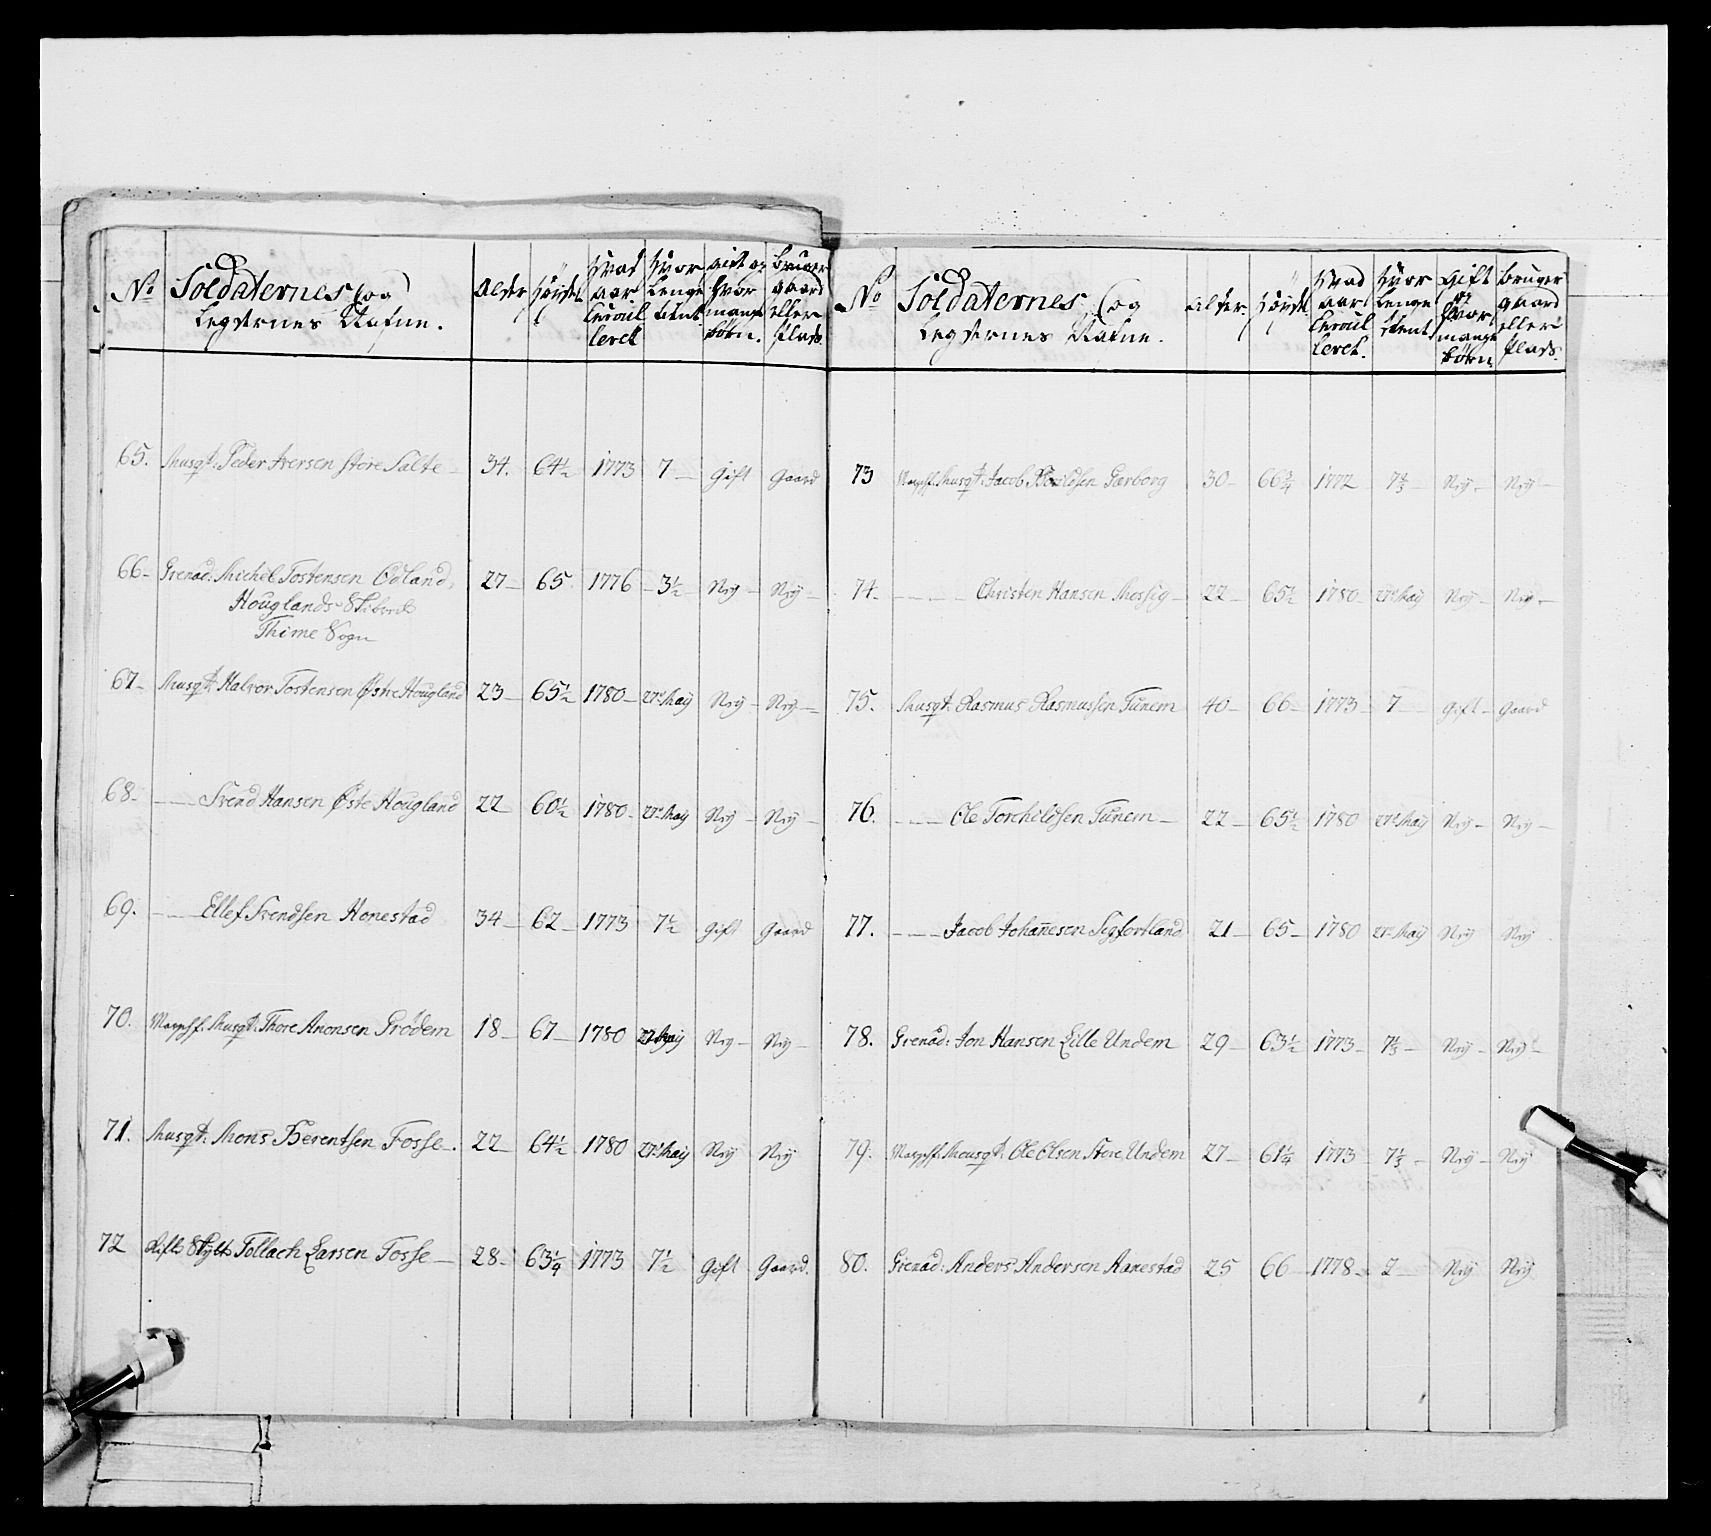 No Soldaternes og Legdernes Nafne. Alder Høyde Hvad aar Enroulleret Hvor Lenge tient gift og hvor mange børn. bruger gaard eller plads.
65. Musqt: Peder Iversen store Salte 34. 64½ 1773 7 Gift Gaard
66 Grenad: Michel Tostensen Odland, 27 65 1776 3½ Nej Nej
Houglands
Thime Sogn
67 Musqt: Halvor Tostensen Østre Hougland 23 65½ 1780 27e Maij Nej Nej
68 Svend Hansen Øste Hougland 22 60½ 1780 27e Maij Nej Nej
69. Ellef Svendsen Honestad 34 62 1773 7½ Gift Gaard
70. Musqt: Thore Anonsen Grödem 18 67 1780 27 Maij Nej Nej
71. Musqt: Mons Berentsen Fosse. 22 64½ 1780 27e Maij Nej Nej
72 Tollach Larsen Fosse 28 63¼ 1773 7½ Gift Gaard.
No Soldaternes og Legdernes Nafne. Alder Høyde Hvad aar Enroulleret. Hvor Lenge tient Gift og hvor mange børn bruger gaard eller plads.
73 Musqt: Jacob Gærborg 30 66¾ 1772 7⅓ Nej Nej
74. Christen Hansen Mossig 22 65½ 1780 27e Maij Nej Nej
75. Musqt: Rasmus Rasmussen Tunem 40 66 1773 7 Gift Gaard
76. Ole Torchildsen Tunem 22 65½ 1780 27e Maij Nej Nej
77. Jacob Johañesen Sigfortland 21 65 1780 27e Maij Nej Nej
78. Grenad: Jon Hansen Lille Undem 29 63½ 1773 7⅓ Nej Nej
79. Mousqt: Ole Olsen Store Undem 27 61¼ 1773 7⅓ Nej Nej
80. Grenad: Anders Andersen Aanestad 25 66 1778 2 Nej Nej